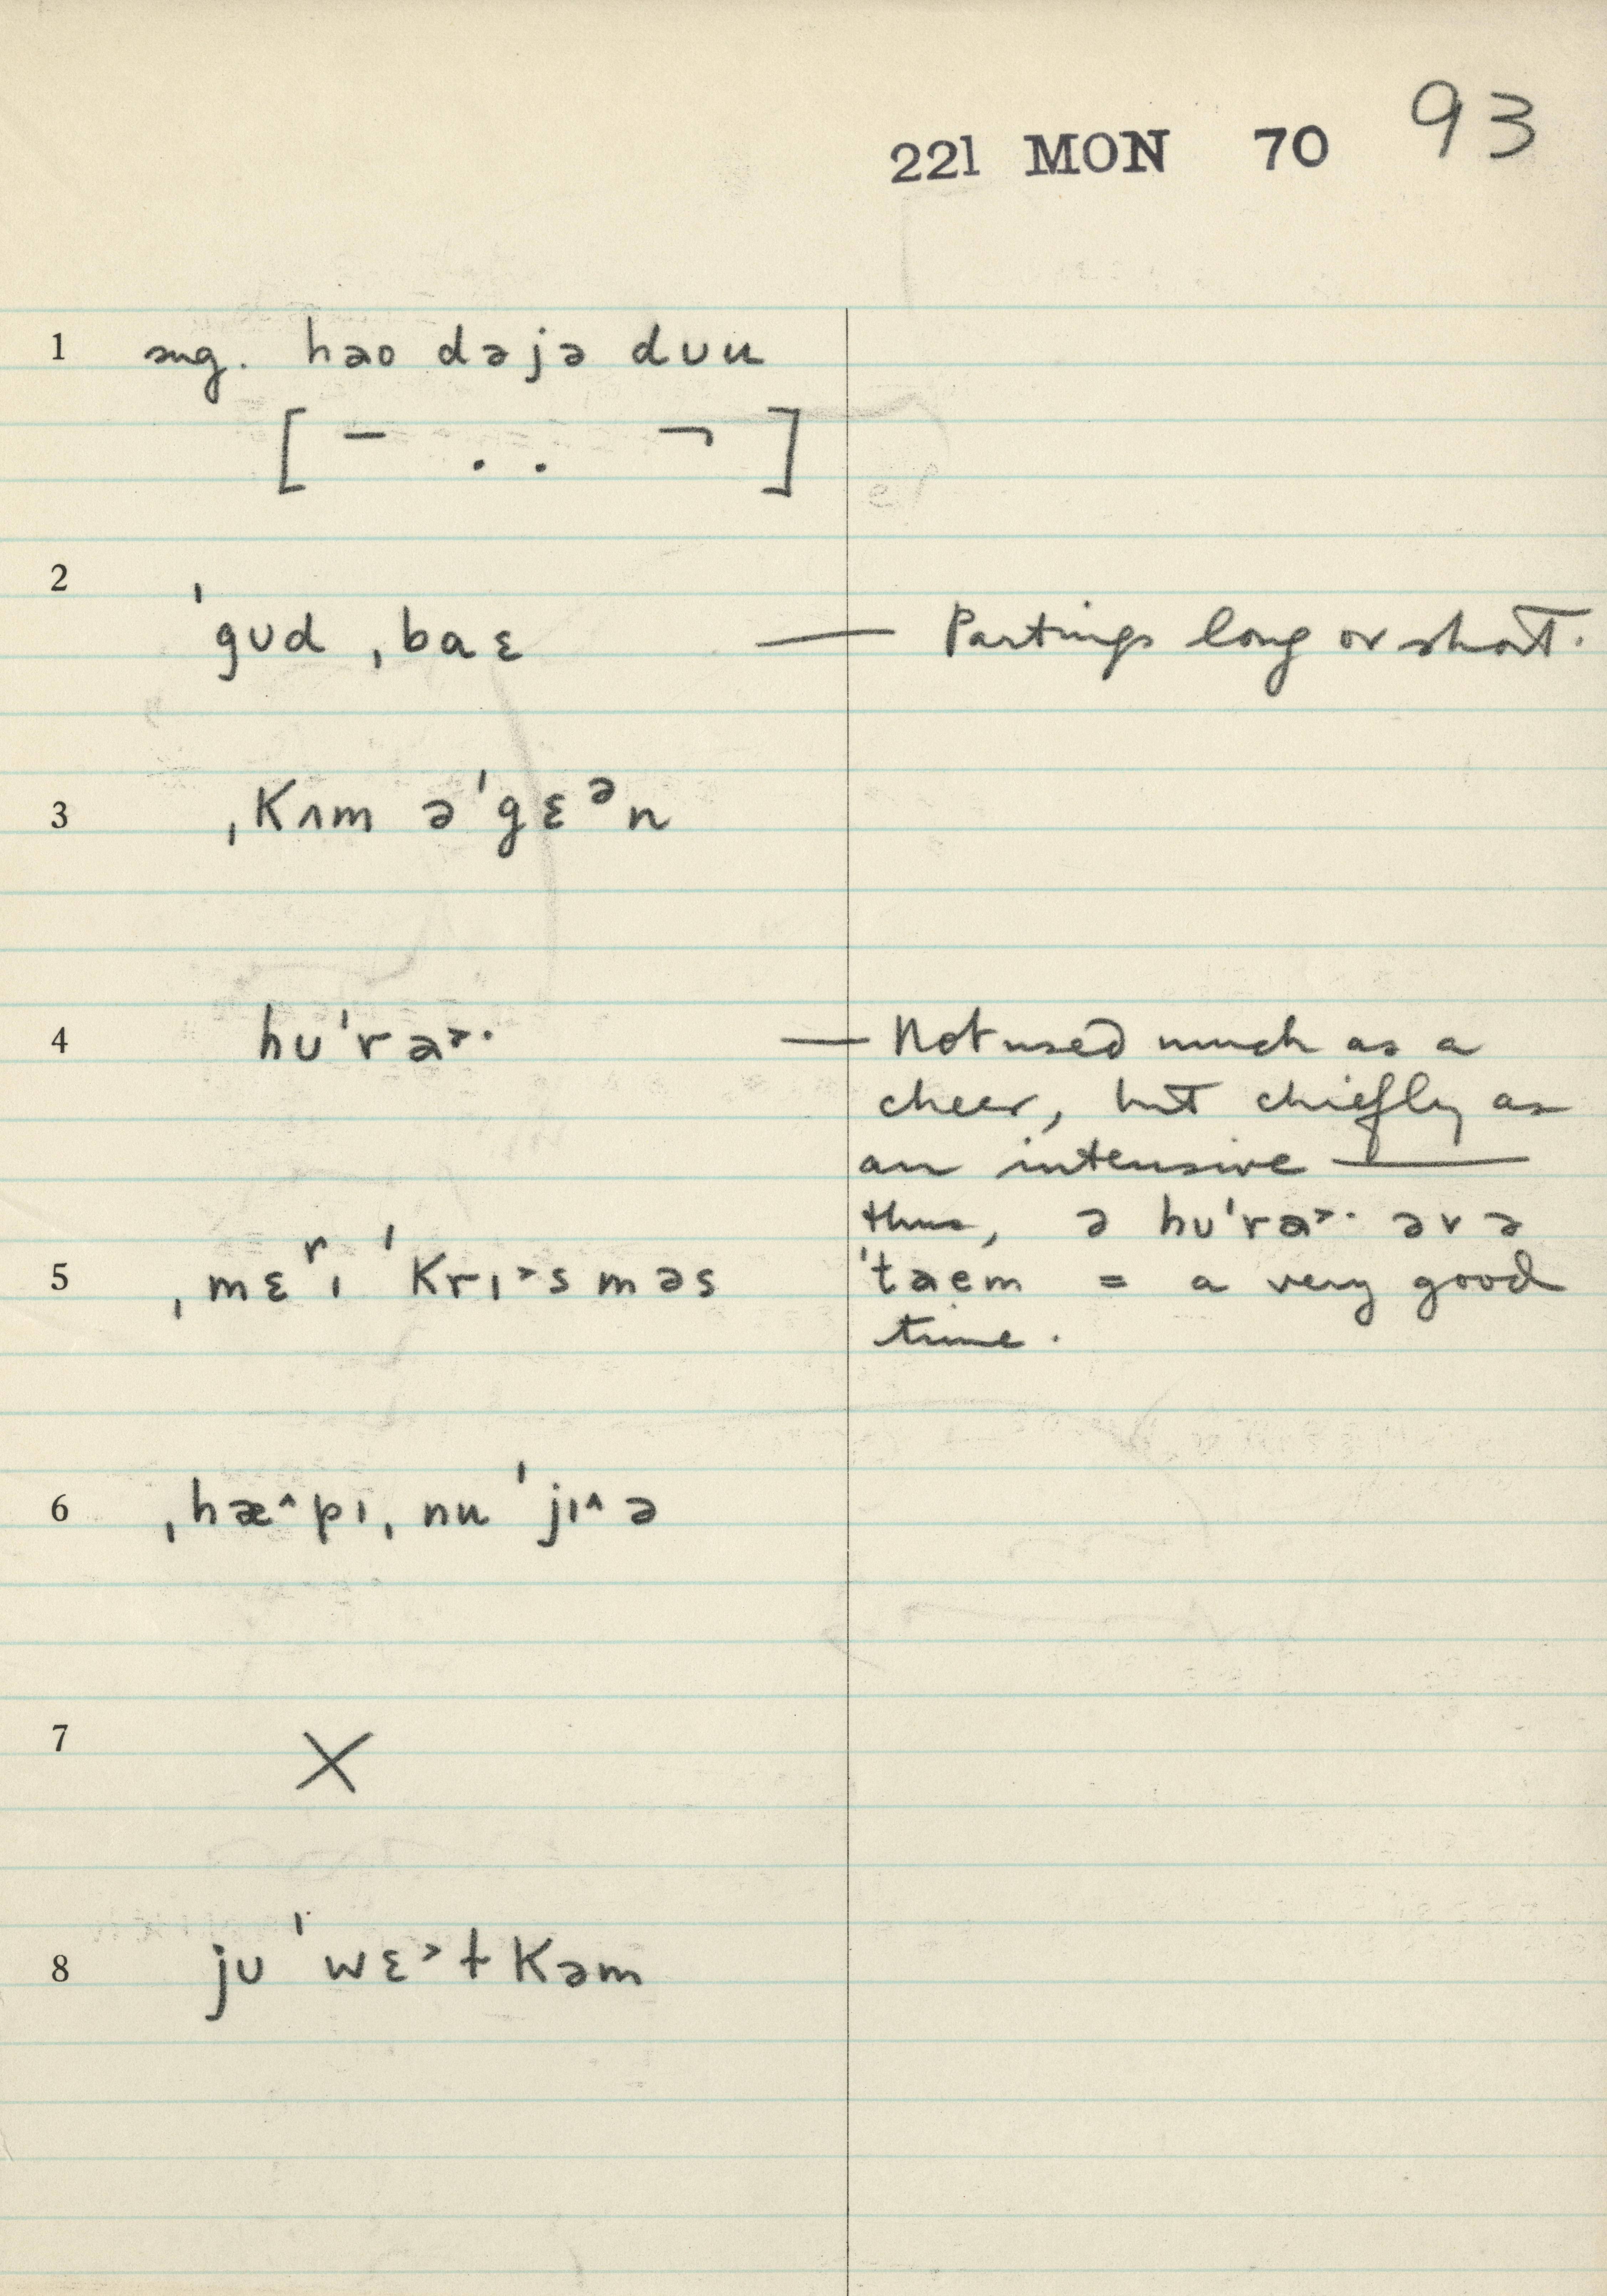 221 MON 70 93
1 sug. hao dəjə dʊu
[ – . . ¬ ]
2 ˈgʊd ˌbaɛ — Partings long or short.
3 ˌkʌm əˈgɛᵊn
4 hʊˈra˃· — Not used much as a
cheer, but chiefly as
an intensive —
thus, ə hʊˈra˃· əv ə
5 ˌmɛʳɪ ˈkrɪ˃sməs
ˈtaem = a very good
time.
6 ˌhæ˄pɪ ˌnu ˈjɪ˄ə
7 X
8 jʊ ˈwɛ˃ɫkəm